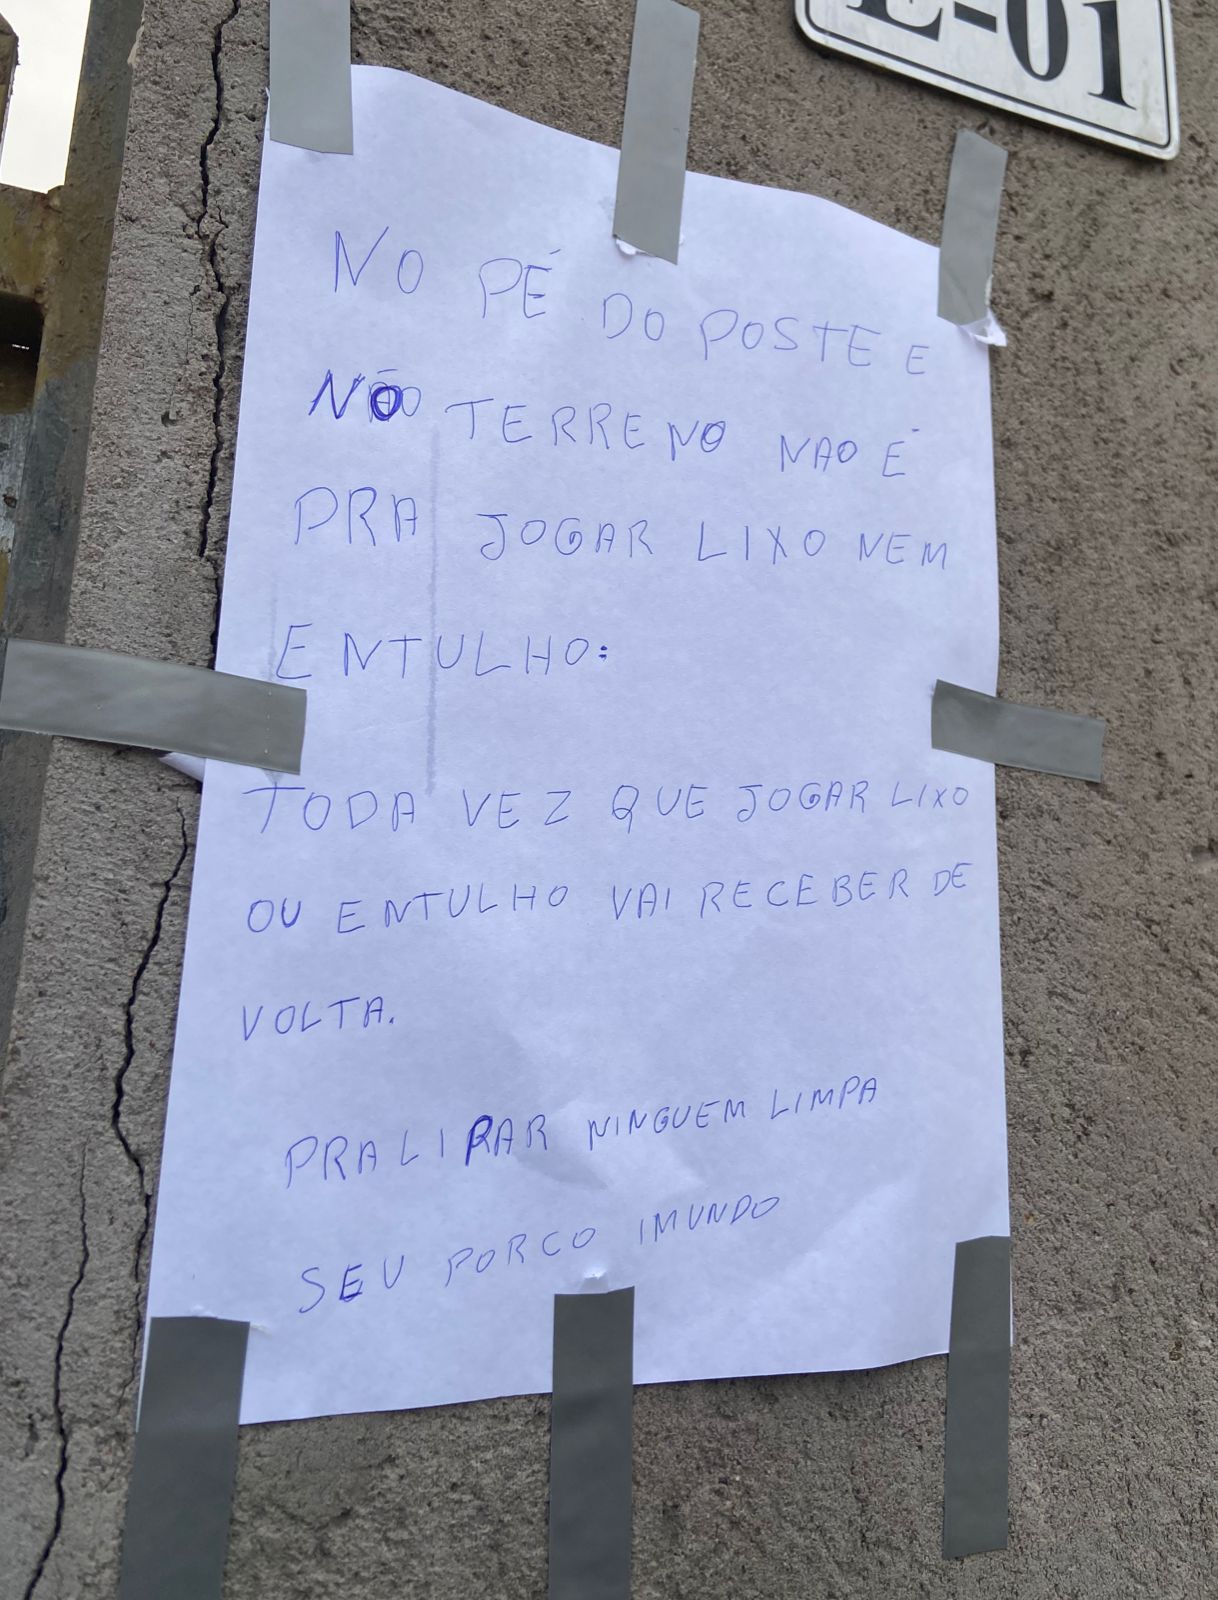 E-01
NO PÉ DO POSTE E
NO TERRENO NAO É
PRA JOGAR LIXO NEM
ENTULHO:
TODA VEZ QUE JOGAR LIXO
OU ENTULHO VAI RECEBER DE
VOLTA.
PRA LIRAR NINGUEM LIMPA
SEU PORCO IMUNDO